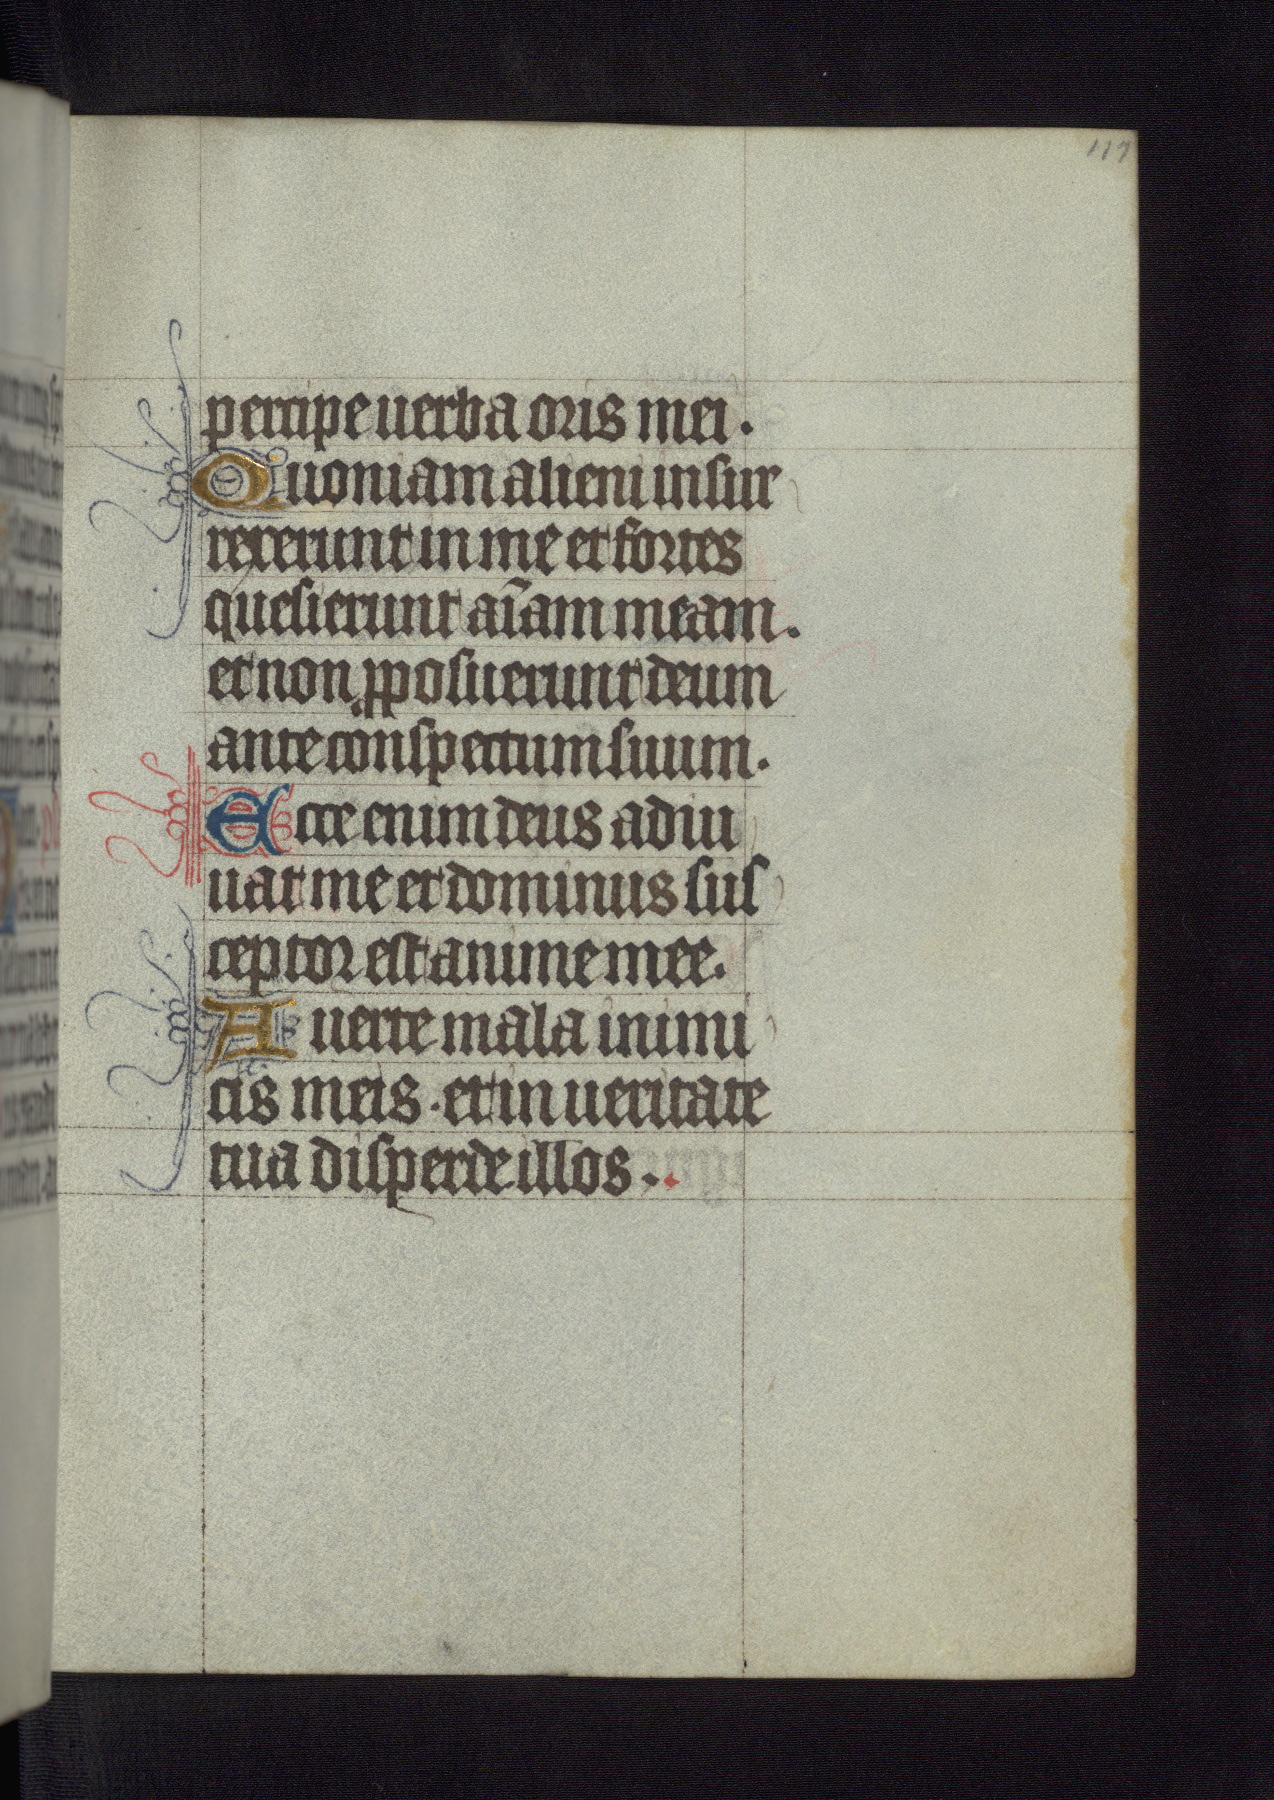 117
percipe uerba oris mei.
Quoniam alieni insur
rexerunt in me et fortes
quesierunt aīam meam.
et non pposuerunt deum
ante conspectum suum.
Ecce enim deus adiu
uat me et dominus sus
ceptor est anime mee.
Auerte mala inimi
cis meis. et in ueritate
tua disperde illos..